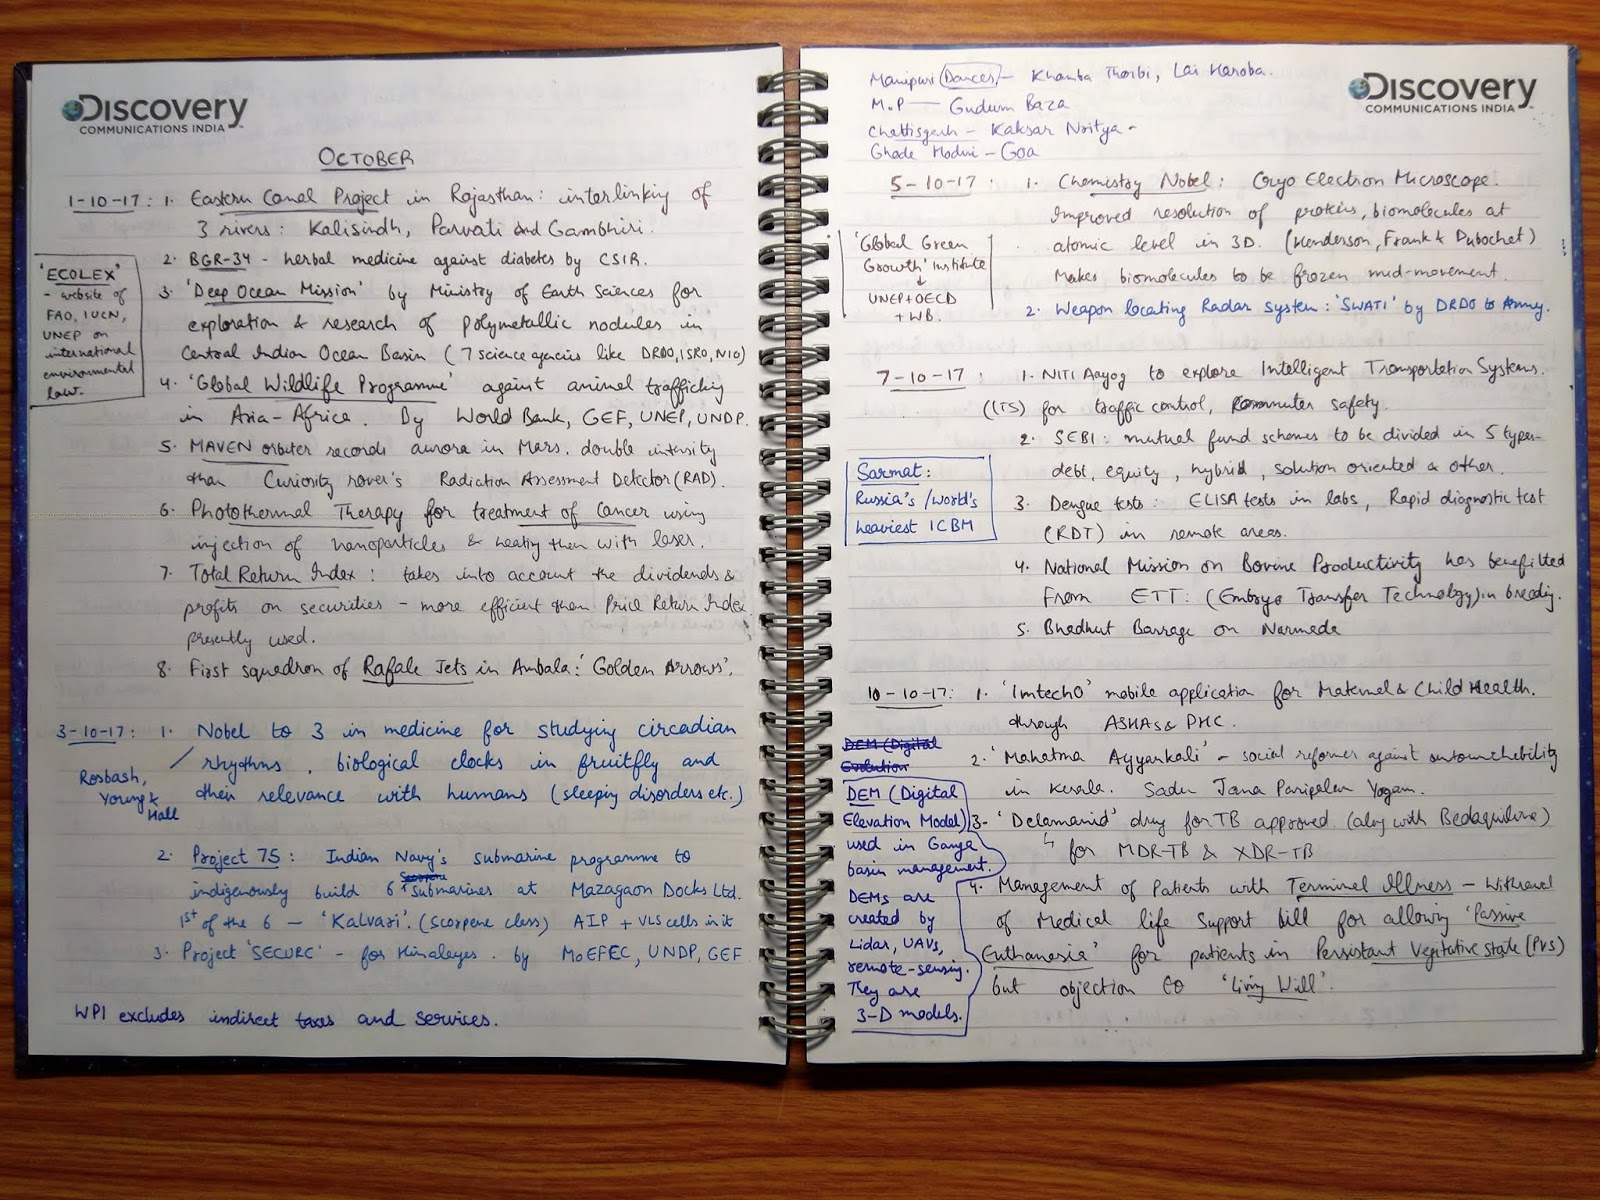 Discovery
COMMUNICATIONS INDIA
OCTOBER
1-10-17: 1. Eastern Canal Project in Rajasthan: interlinking of
3 rivers: Kalisindh, Parvati and Gambhiri.
2. BGR-34 - herbal medicine against diabetes by CSIR.
'ECOLEX'
- website of
FAO, IUCN,
UNEP on
international
environmental
law.
3. 'Deep Ocean Mission' by Ministry of Earth Sciences for
exploration & research of polymetallic nodules in
Central Indian Ocean Basin (7 science agencies like DRDO, ISRO, NIO)
4. 'Global Wildlife Programme' against animal trafficking
in Asia-Africa. By World Bank, GEF, UNEP, UNDP.
5. MAVEN orbiter records aurora in Mars. double intensity
than Curiosity rover's Radiation Assessment Detector (RAD).
6. Photothermal Therapy for treatment of Cancer using
injection of nanoparticles & heating them with laser.
7. Total Return Index: takes into account the dividends &
profits on securities - more efficient than Price Return Index
presently used.
8. First squadron of Rafale Jets in Ambala: 'Golden Arrows'.
3-10-17: 1. Nobel to 3 in medicine for studying circadian
rhythms. biological clocks in fruitfly and
their relevance with humans (sleeping disorders etc.)
Rosbash,
Young &
Hall
2. Project 75: Indian Navy's submarine programme to
indigenously build 6 submarines at Mazagaon Docks Ltd.
1st of the 6 - 'Kalvari'. (Scorpene class) AIP + VLS cells in it
3. Project 'SECURE' - for Himalayas. by MoEFCC, UNDP, GEF
WPI excludes indirect taxes and services.
Manipuri Dances - Khamba Thoibi, Lai Haroba.
M.P - Gudum Baza
Chattisgarh - Kaksar Nritya -
Ghode Modni - Goa
Discovery
COMMUNICATIONS INDIA
5-10-17: 1. Chemistry Nobel: Cryo Electron Microscope.
Improved resolution of proteins, biomolecules at
atomic level in 3D. (Henderson, Frank & Dubochet)
Makes biomolecules to be frozen mid-movement.
'Global Green
Growth' Institute
↓
UNEP+OECD
+WB.
2. Weapon locating Radar System: 'SWATI' by DRDO to Army.
7-10-17: 1. NITI Aayog to explore Intelligent Transportation Systems.
(ITS) for traffic control, commuter safety.
2. SEBI: mutual fund schemes to be divided in 5 types-
debt, equity, hybrid, solution oriented & other.
Sarmat:
Russia's/world's
heaviest ICBM
3. Dengue tests: ELISA tests in labs, Rapid diagnostic test
(RDT) in remote areas.
4. National Mission on Bovine Productivity has benefitted
from ETT: (Embryo Transfer Technology) in breeding.
5. Bhadhut Barrage on Narmada
10-10-17: 1. 'ImtechO' mobile application for Maternal & Child Health.
through ASHAs & PHC.
2. 'Mahatma Ayyankali' - social reformer against untouchability
in Kerala. Sadu Jana Paripalan Yogam.
3- 'Delamanid' drug for TB approved. (along with Bedaquiline)
↳ for MDR-TB & XDR-TB
4. Management of Patients with Terminal Illness - Withrawal
of Medical life Support bill for allowing 'Passive
Euthanasia' for patients in Persistant Vegitative state (PVS)
but objection to 'living Will'.
DEM (Digital
Evolution
DEM (Digital
Elevation Model)
used in Ganga
basin management.
DEMs are
created by
Lidar, UAVs,
remote-sensing.
They are
3-D models.